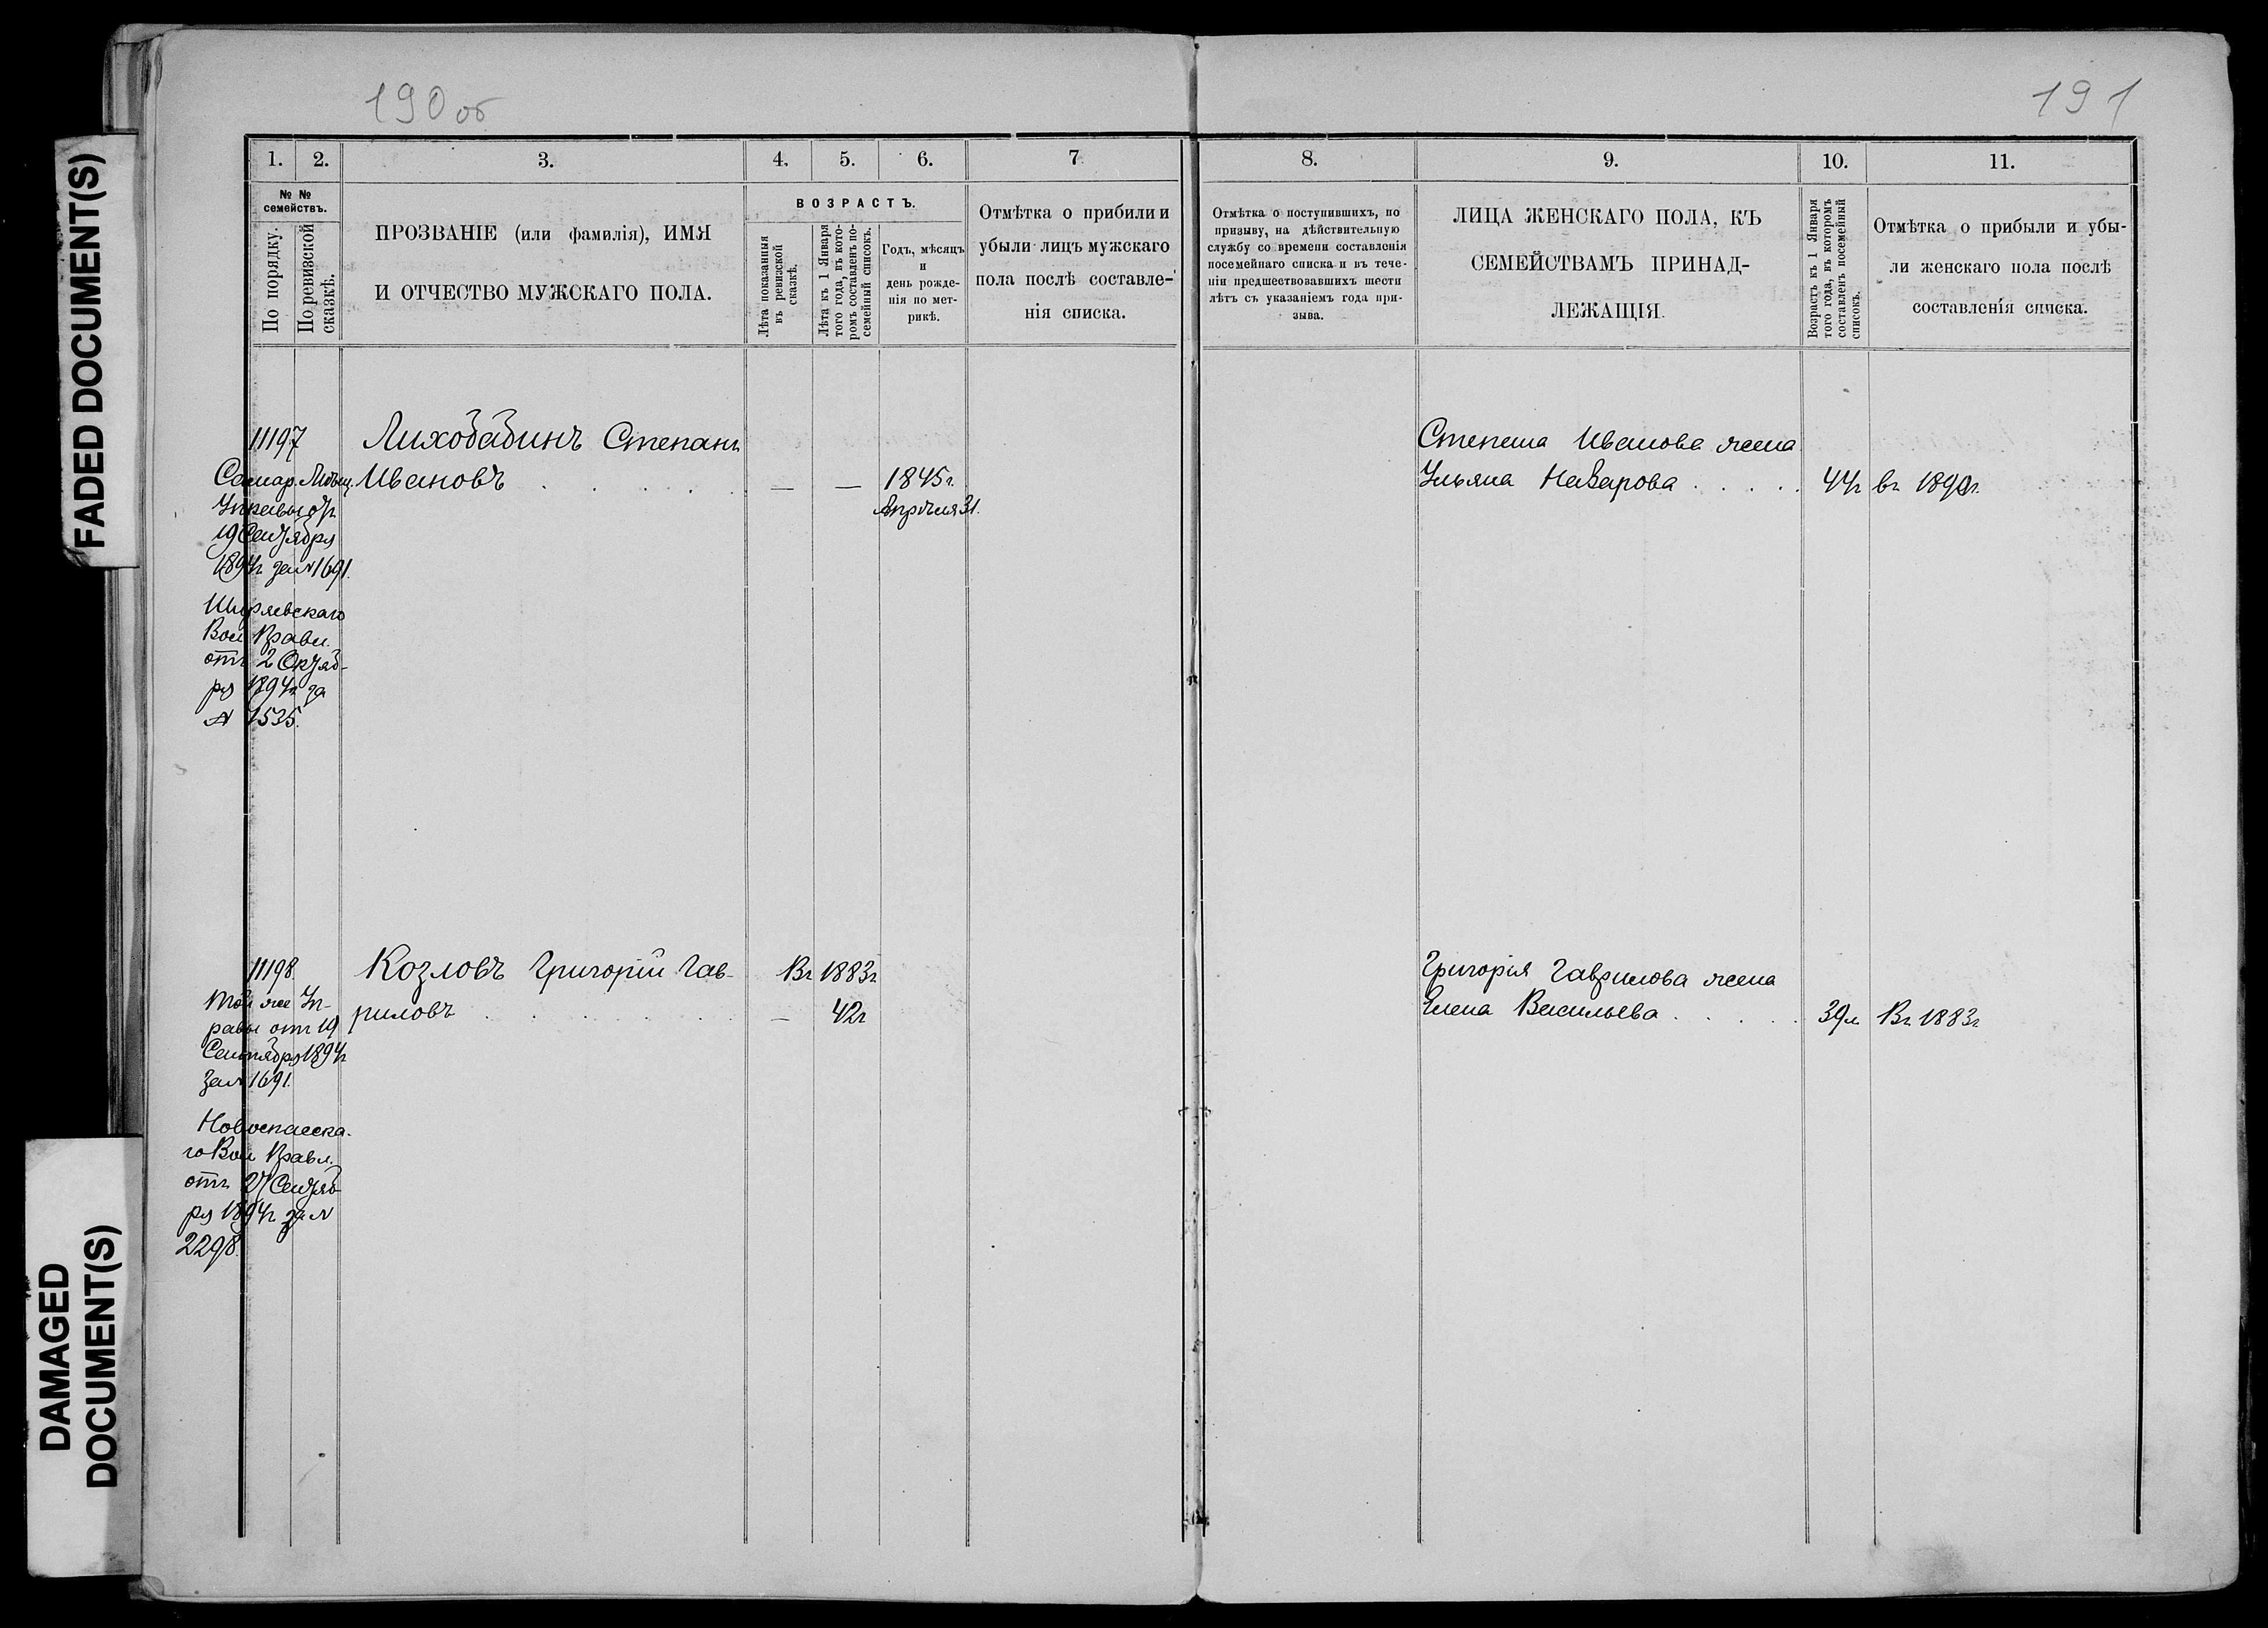 FADED DOCUMENT(S)
DAMAGED
DOCUMENT(S)
190 об
191
1.
2.
3.
4.
5.
6.
7
8.
9.
10.
11.
№ №
семействъ.
По порядку.
По ревизской
сказкѣ.
ПРОЗВАНІЕ (или фамилія), ИМЯ
И ОТЧЕСТВО МУЖСКАГО ПОЛА.
ВОЗРАСТЪ.
Лѣта показанныя
въ ревизской
сказкѣ.
Лѣта къ 1 Января
того года, въ кото-
ромъ составленъ по-
семейный списокъ.
Годъ, мѣсяцъ
и
день рожде-
нія по мет-
рикѣ.
Отмѣтка о прибыли и
убыли лицъ мужскаго
пола послѣ составле-
нія списка.
Отмѣтка о поступившихъ, по
призыву, на дѣйствительную
службу со времени составленія
посемейнаго списка и въ тече-
ніи предшествовавшихъ шести
лѣтъ съ указаніемъ года при-
зыва.
ЛИЦА ЖЕНСКАГО ПОЛА, КЪ
СЕМЕЙСТВАМЪ ПРИНАД-
ЛЕЖАЩІЯ.
Возрастъ къ 1 Января
того года, въ которомъ
составленъ посемейный
списокъ.
Отмѣтка о прибыли и убы-
ли женскаго пола послѣ
составленія списка.
11197
Самар. Мѣщ.
Управы отъ
19 Сентября
1894г за № 1691.
Ширяевскаго
Вол Правл.
отъ 2 Октяб-
ря 1894г за
№ 1535.
Лихобабинъ Степанъ
Ивановъ . . . . . — — 1845г.
Апрѣля 31.
Степана Иванова жена
Ульяна Назарова . . . . 44г въ 1890г.
11198
Той же Уп-
равы отъ 19
Сентября 1894г
за № 1691.
Новоспасска-
го Вол Правл.
отъ 27 Сентяб-
ря 1894г за №
2298.
Козловъ Григорій Гав-
риловъ . . . . . . . —
Въ 1883г
42г
Григорія Гаврилова жена
Елена Васильева . . . . . 39л Въ 1883г